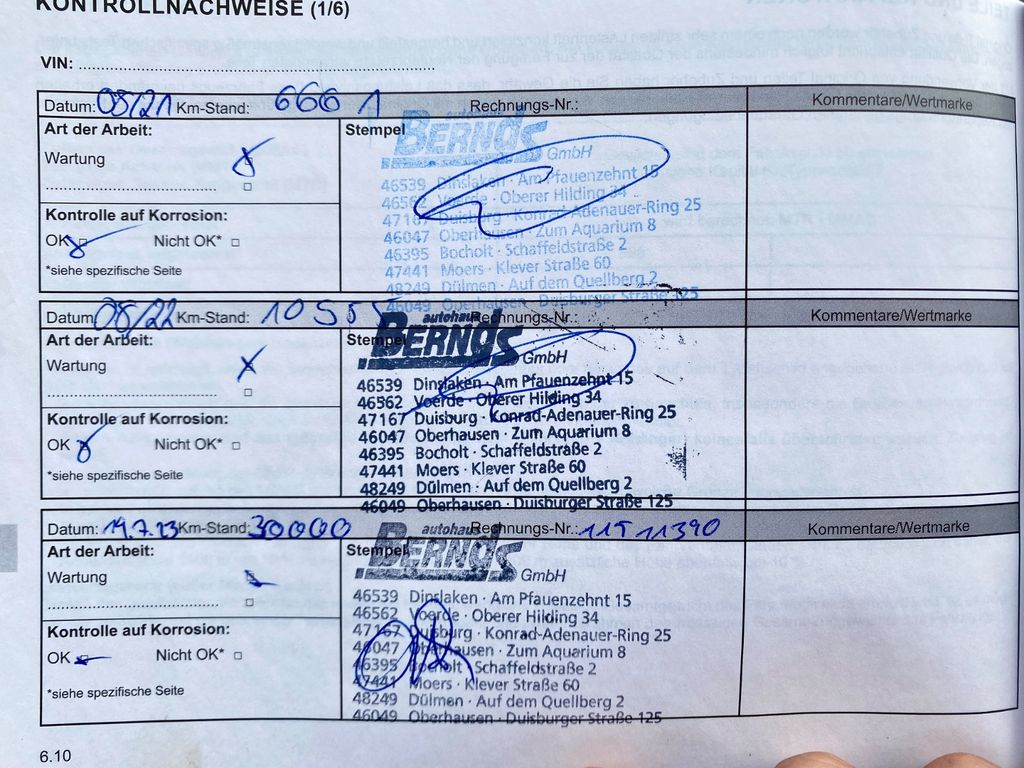 KONTROLLNACHWEISE (1/6)
VIN:
Datum: 08/21 Km-Stand: 6661 Rechnungs-Nr.: Kommentare/Wertmarke
Art der Arbeit:
Stempel
Wartung
Kontrolle auf Korrosion:
OK Nicht OK*
*siehe spezifische Seite
autohaus
BERNDS
GmbH
46539 Dinslaken · Am Pfauenzehnt 15
46562 Voerde · Oberer Hilding 34
47167 Duisburg · Konrad-Adenauer-Ring 25
46047 Oberhausen · Zum Aquarium 8
46395 Bocholt · Schaffeldstraße 2
47441 Moers · Klever Straße 60
48249 Dülmen · Auf dem Quellberg 2
46049 Oberhausen · Duisburger Straße 125
Datum: 08/22 Km-Stand: Rechnungs-Nr.: Kommentare/Wertmarke
Art der Arbeit:
Stempel
Wartung
Kontrolle auf Korrosion:
OK Nicht OK*
*siehe spezifische Seite
autohaus
BERNDS
GmbH
46539 Dinslaken · Am Pfauenzehnt 15
46562 Voerde · Oberer Hilding 34
47167 Duisburg · Konrad-Adenauer-Ring 25
46047 Oberhausen · Zum Aquarium 8
46395 Bocholt · Schaffeldstraße 2
47441 Moers · Klever Straße 60
48249 Dülmen · Auf dem Quellberg 2
46049 Oberhausen · Duisburger Straße 125
Datum: 19.7.23 Km-Stand: 30000 Rechnungs-Nr.: Kommentare/Wertmarke
Art der Arbeit:
Stempel
Wartung
Kontrolle auf Korrosion:
OK Nicht OK*
*siehe spezifische Seite
autohaus
BERNDS
GmbH
46539 Dinslaken · Am Pfauenzehnt 15
46562 Voerde · Oberer Hilding 34
47167 Duisburg · Konrad-Adenauer-Ring 25
46047 Oberhausen · Zum Aquarium 8
46395 Bocholt · Schaffeldstraße 2
47441 Moers · Klever Straße 60
48249 Dülmen · Auf dem Quellberg 2
46049 Oberhausen · Duisburger Straße 125
6.10